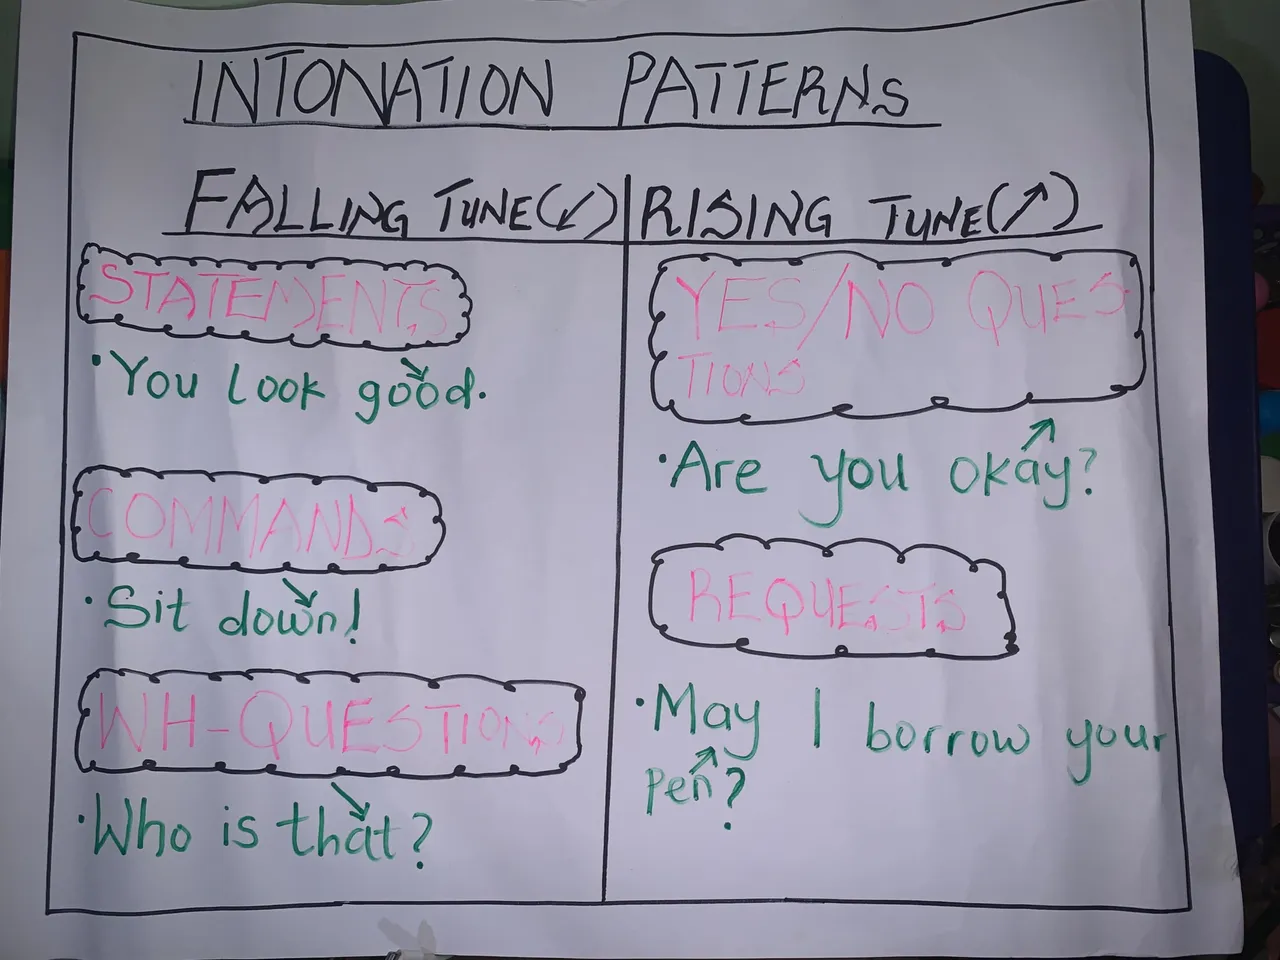 INTONATION PATTERNS
FALLING TUNE(↙)
STATEMENTS
·You look good.
COMMANDS
·Sit down!
WH-QUESTIONS
·Who is that?
RISING TUNE(↗)
YES/NO QUES
TIONS
·Are you okay?
REQUESTS
·May I borrow your
Pen?